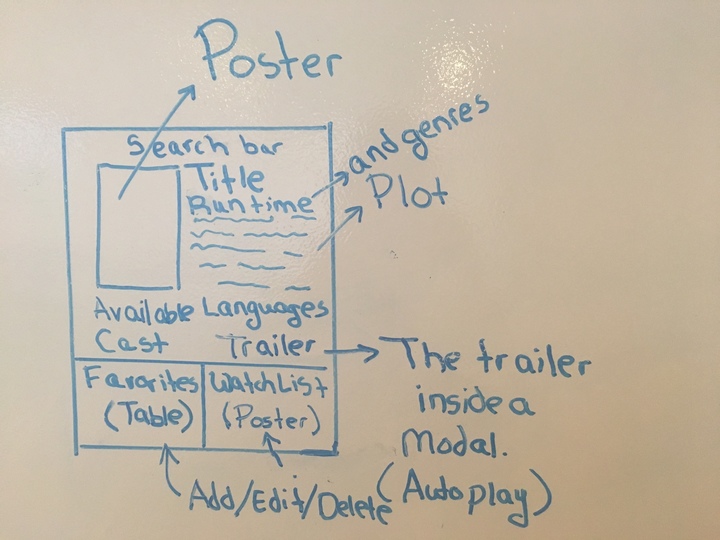 Poster
Search bar
Title
Runtime
and genres
Plot
Available Languages
Cast
Trailer
The trailer
inside a
Modal.
(Autoplay)
Favorites
(Table)
WatchList
(Poster)
Add/Edit/Delete